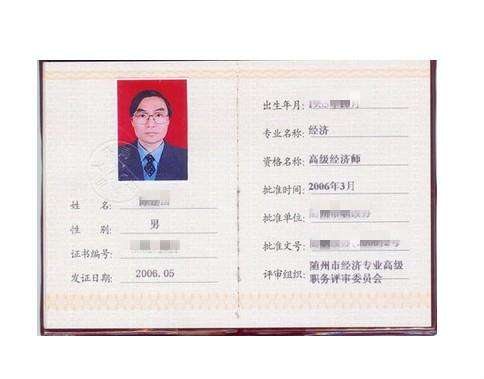 姓 名:
性 别: 男
证书编号:
发证日期: 2006.05
出生年月:
专业名称: 经济
资格名称: 高级经济师
批准时间: 2006年3月
批准单位:
批准文号:
评审组织: 随州市经济专业高级
职务评审委员会